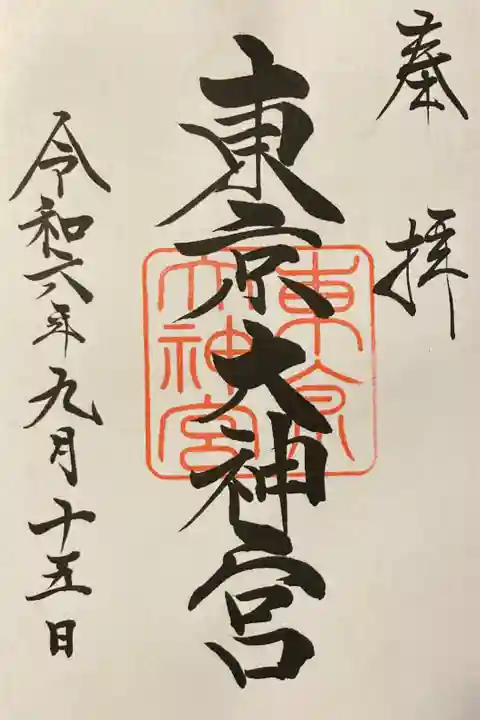 奉拝
東京大神宮
東京
大神宮
令和六年九月十五日